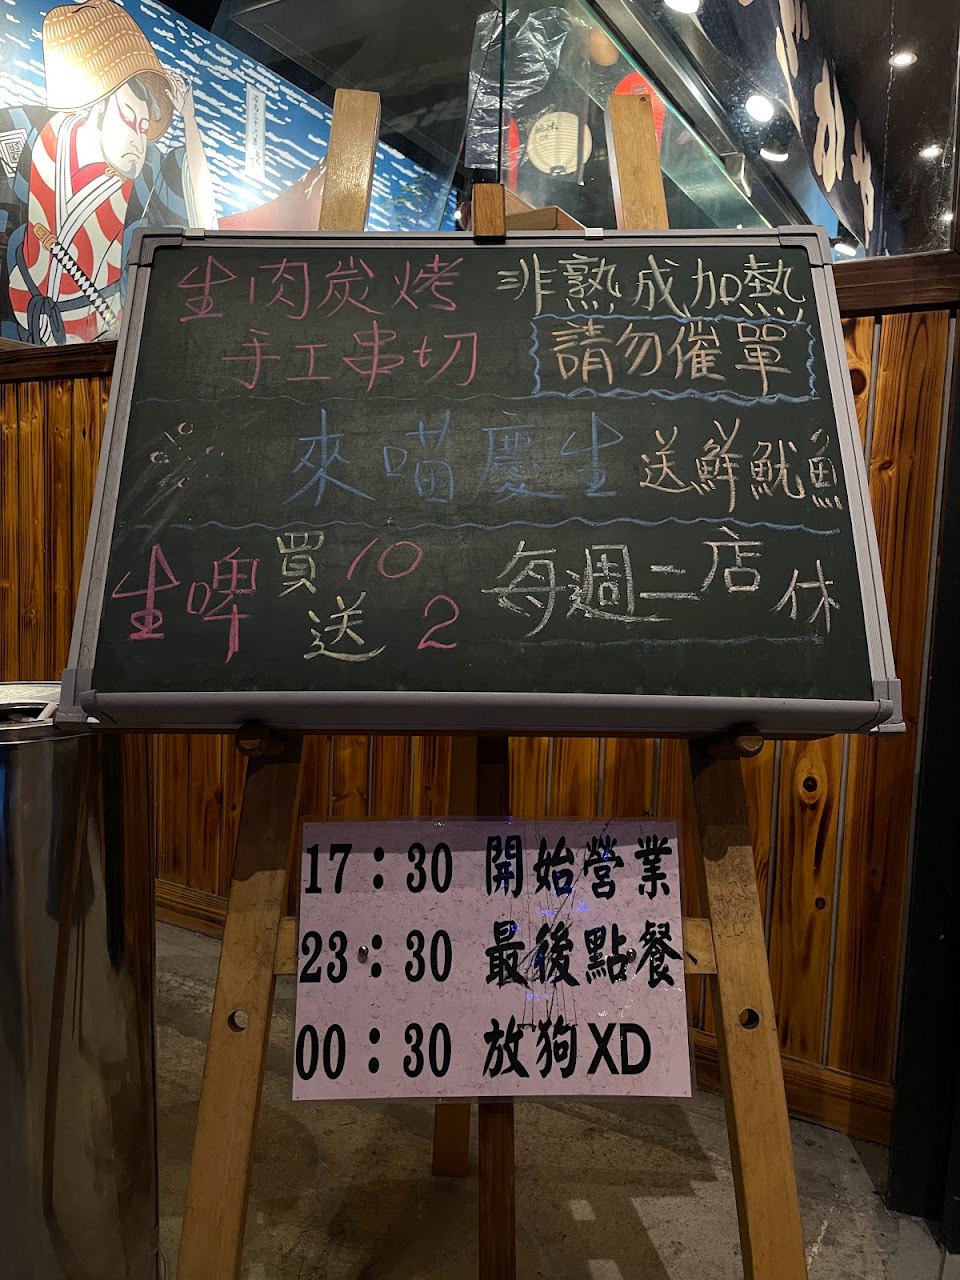 生肉炭烤
手工串切
非熟成加熱
請勿催單
來喵慶生 送鮮魷魚
生啤買10送2
每週二店休
17：30 開始營業
23：30 最後點餐
00：30 放狗XD